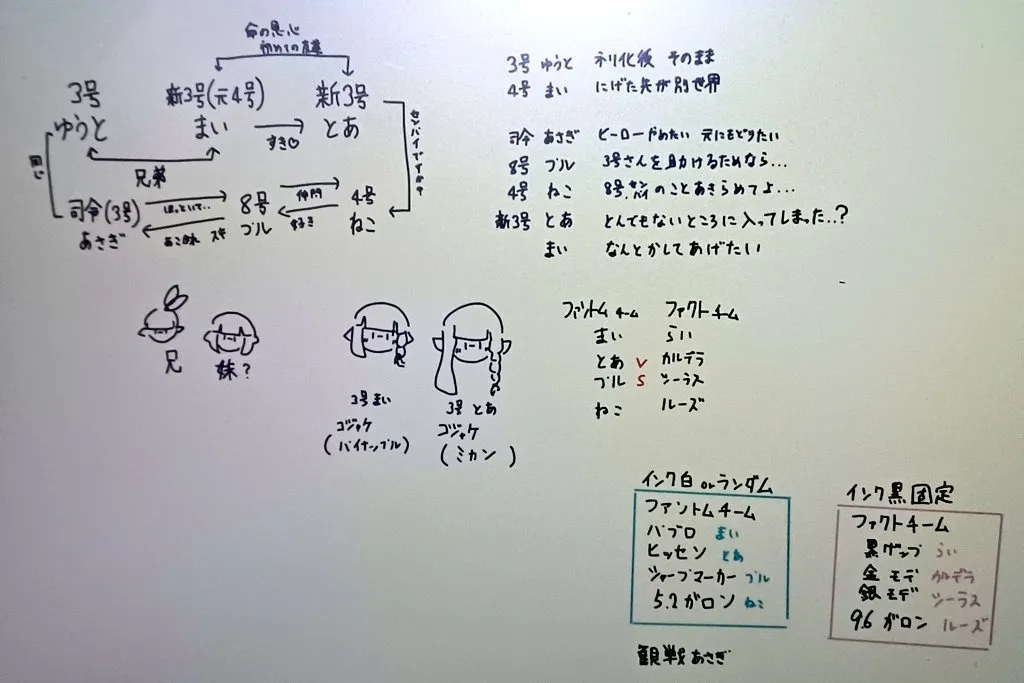 命の恩人
初めての友達
3号
新3号(元4号)
新3号
ゆうと
まい
すき♡
とあ
センパイですか?
同じ
兄弟
司令(3号)
ほっといて…
8号
仲間
4号
あさぎ
あこがれ スキ
ブル
好き
ねこ
3号 ゆうと ネリ化後 そのまま
4号 まい にげた先が別世界
司令 あさぎ ヒーローやめたい 元にもどりたい
8号 ブル 3号さんを助けるためなら…
4号 ねこ 8号センパイのことあきらめてよ…
新3号 とあ とんでもないところに入ってしまった..?
まい なんとかしてあげたい
兄
妹?
3号 まい
コジャケ
(パイナップル)
3号 とあ
コジャケ
(ミカン)
ファントムチーム ファクトチーム
まい らい
とあ V カルデラ
ブル S シーラス
ねこ ルーズ
インク白orランダム
ファントムチーム
パブロ まい
ヒッセン とあ
シャープマーカー ブル
5.2ガロン ねこ
観戦 あさぎ
インク黒固定
ファクトチーム
黒ザップ らい
金モデ カルデラ
銀モデ シーラス
96ガロン ルーズ